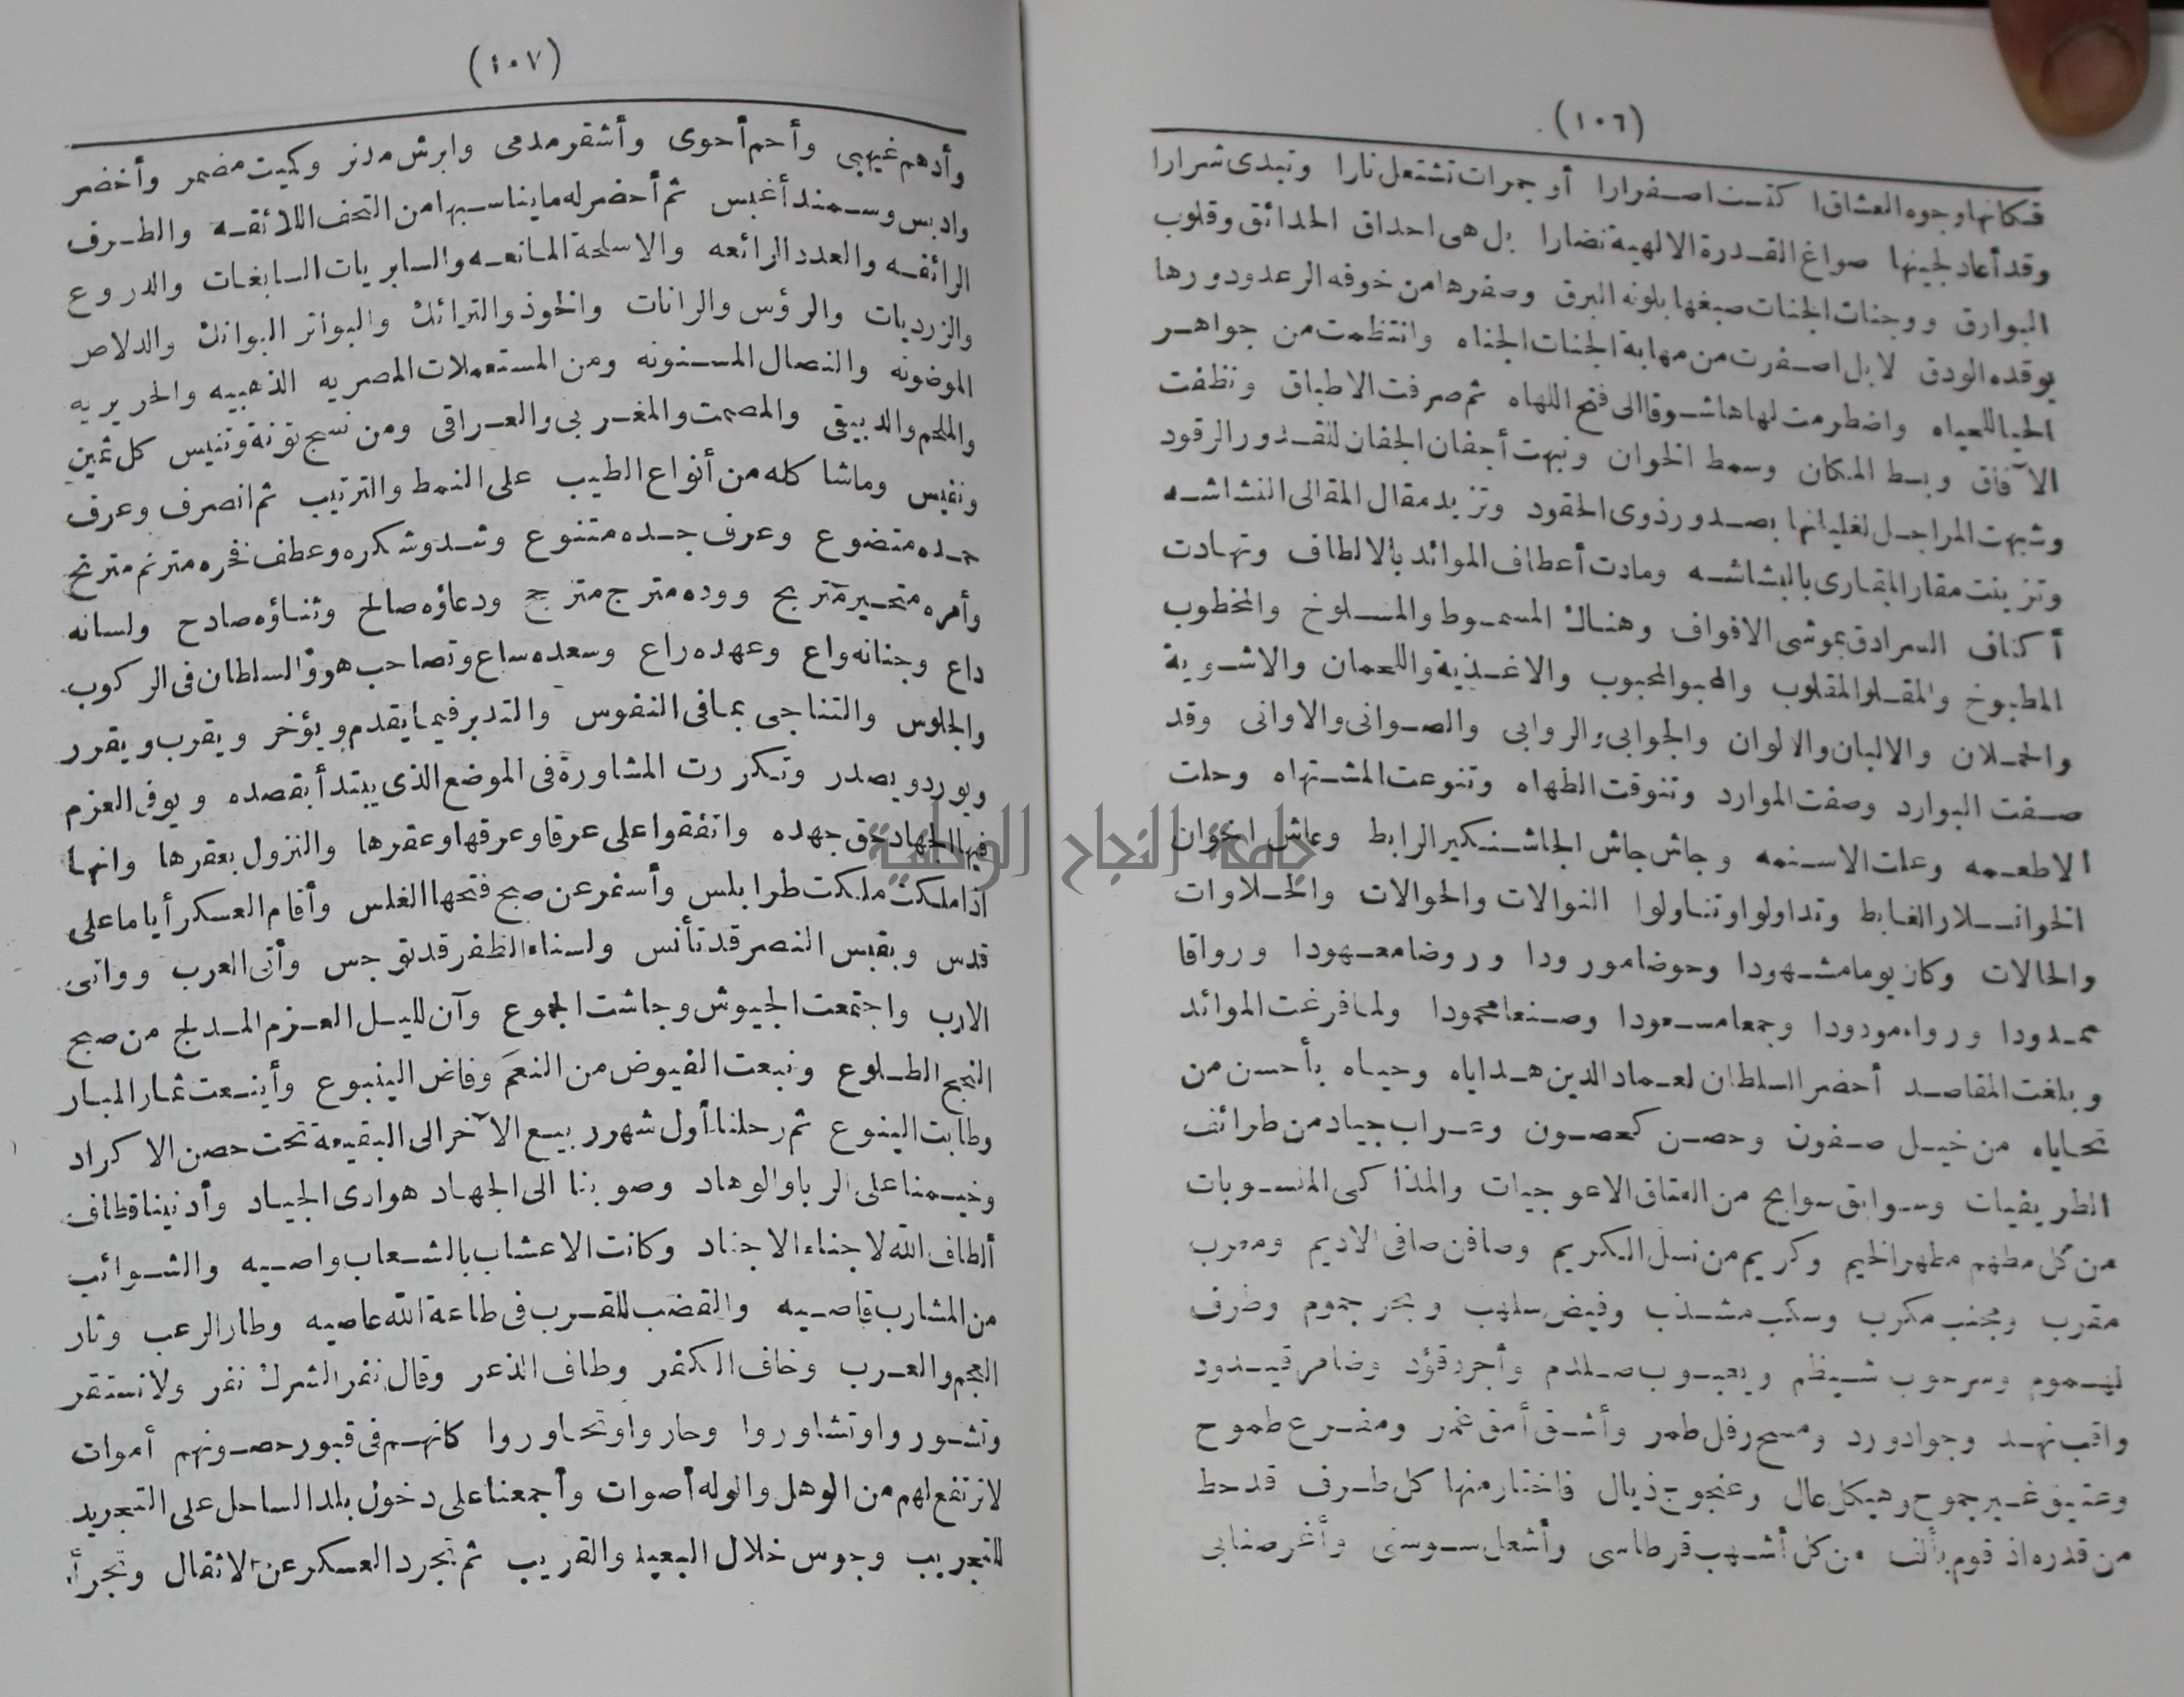 (١٠٦)
فكانها وجوه العشاق اكتست اصفرارا أو جمرات تشتعل نارا وتبدى شرارا
وقد أعاد لجينها صواغ القدرة الالهية نضارا بل هى احداق الحدائق وقلوب
البوارق ووجنات الجنات صبغها بلونه البرق وصفرها من خوفه الرعد ودورها
بوقده الودق لا بل اصفرت من مهابة الجنات الجناه وانتظمت من جواهر
الحيا للحياه واضطرمت لها هاشوقا الى فتح اللهاه ثم صرفت الاطباق ونظفت
الآفاق وبسط المكان وسمط الخوان ونبهت أجفان الجفان للقدور الرقود
وشبهت المراجل لغليانها بصدور ذوى الحقود وتزيد مقال المقالى النشاشه
وتزينت مقار المقارى بالبشاشه ومادت أعطاف الموائد بالالطاف وتهادت
أكناف السرادق بموشى الافواف وهناك المسموط والمسلوخ والمخطوب
المطبوخ والمقلو المقلوب والمحبو المحبوب والاغذية واللحمان والاشوية
والحملان والالبان والالوان والجوابى والروابى والصوانى والاوانى وقد
صفت البوارد وصفت الموارد وتنوقت الطهاه وتنوعت المشتهاه وحلت
الاطعمه وعلت الاسنمه وجاش جاش الجاشنكير الرابط وعاش اخوان
الخوانسلار الغابط وتداولوا وتناولوا النوالات والحوالات والحلاوات
والحالات وكان يوما مشهودا وحوضا مورودا وروضا معهودا ورواقا
ممدودا ورواء مودودا وجمعا مسعودا وصنعا محمودا ولما فرغت الموائد
وبلغت المقاصد أحضر السلطان لعماد الدين هداياه وحياه بأحسن من
تحاياه من خيل صفون وحصن كحصون وعراب جياد من طرائف
الطريفيات وسوابق سوابح من العتاق الاعوجيات والمذاكى المنسوبات
من كل مطهم مطهر الخيم وكريم من نسل الكريم وصافن صافى الاديم ومعرب
مقرب ومجنب مكرب وسكب مشذب وفيض سلهب وبحر جموم وطرف
لهموم وسرحوب شيظم ويعبوب صلدم وأجرد قؤد وضامر قيدود
واقب نهد وجواد ورد ومسح رفل طمر وأشق أمق غمر ومفرع طموح
وعتيق غير جموح وهيكل عال وعنجوج ذيال فاختار منها كل طرف قد حط
من قدره اذ قوم بألف من كل أشهب قرطاسى وأشعل سوسنى وأغر صنابى
(١٠٧)
وأدهم غيهبى وأحم أحوى وأشقر مدمى وابرش مدنر وكميت مضمر وأخضر
وادبس وسمند أغبس ثم أحضر له ما يناسبها من التحف اللائقه والطرف
الرائقه والعدد الرائعه والاسلحة المانعه والسابريات السابغات والدروع
والزرديات والرؤس والرانات والخوذ والترائك والبواتر البواتك والدلاص
الموضونه والنصال المسنونه ومن المستعملات المصريه الذهبيه والحريريه
والملحم والدبيقى والمصمت والمغربى والعراقى ومن نسج تونة وتنيس كل ثمين
ونفيس وما شاكله من أنواع الطيب على النمط والترتيب ثم انصرف وعرف
حمده متضوع وعرف جده متنوع وشدو شكره وعطف فخره مترنم مترنح
وأمره متحير متربح ووده متزج متزجج ودعاؤه صالح وثناؤه صادح ولسانه
داع وجنانه واع وعهده راع وسعده ساع وتصاحب هو والسلطان فى الركوب
والجلوس والتناجى بما فى النفوس والتدبر فيما يقدم ويؤخر ويقرب ويقرر
ويورد ويصدر وتكررت المشاورة فى الموضع الذى يبتدأ بقصده ويوفى العزم
فيها الجهاد حق جهده واتفقوا على عرقا وعرقها وعقرها والنزول بعقرها وانها
اذا ملكت ملكت طرابلس وأسفر عن صبح فتحها الغلس وأقام العسكر أياما على
قدس وبقبس النصر قد تأنس ولسناء الظفر قد توجس وأتى العرب وواتى
الارب واجتمعت الجيوش وجاشت الجموع وآن لليل العزم المدلج من صبح
النجح الطلوع ونبعت الفيوض من النعم وفاض الينبوع وأينعت ثمار المبار
وطابت الينوع ثم رحلنا أول شهر ربيع الآخر الى البقيعة تحت حصن الاكراد
وخيمنا على الربا والوهاد وصوبنا الى الجهاد هوادى الجياد وأدنينا قطاف
ألطاف الله لاجناء الاجناد وكانت الاعشاب بالشعاب واصيه والشوائب
من المشارب قاصيه والقضب للقرب فى طاعة الله عاصيه وطار الرعب وثار
العجم والعرب وخاف الكفر وطاف الذعر وقال نفر الشرك نفر ولا نستقر
وتشوروا وتشاوروا وحاروا وتحاوروا كانهم فى قبور حصونهم أموات
لا ترتفع لهم من الوهل والوله أصوات وأجمعنا على دخول بلد الساحل على التجريد
للتجريب وجوس خلال البعيد والقريب ثم تجرد العسكر عن الاثقال وتجرأ